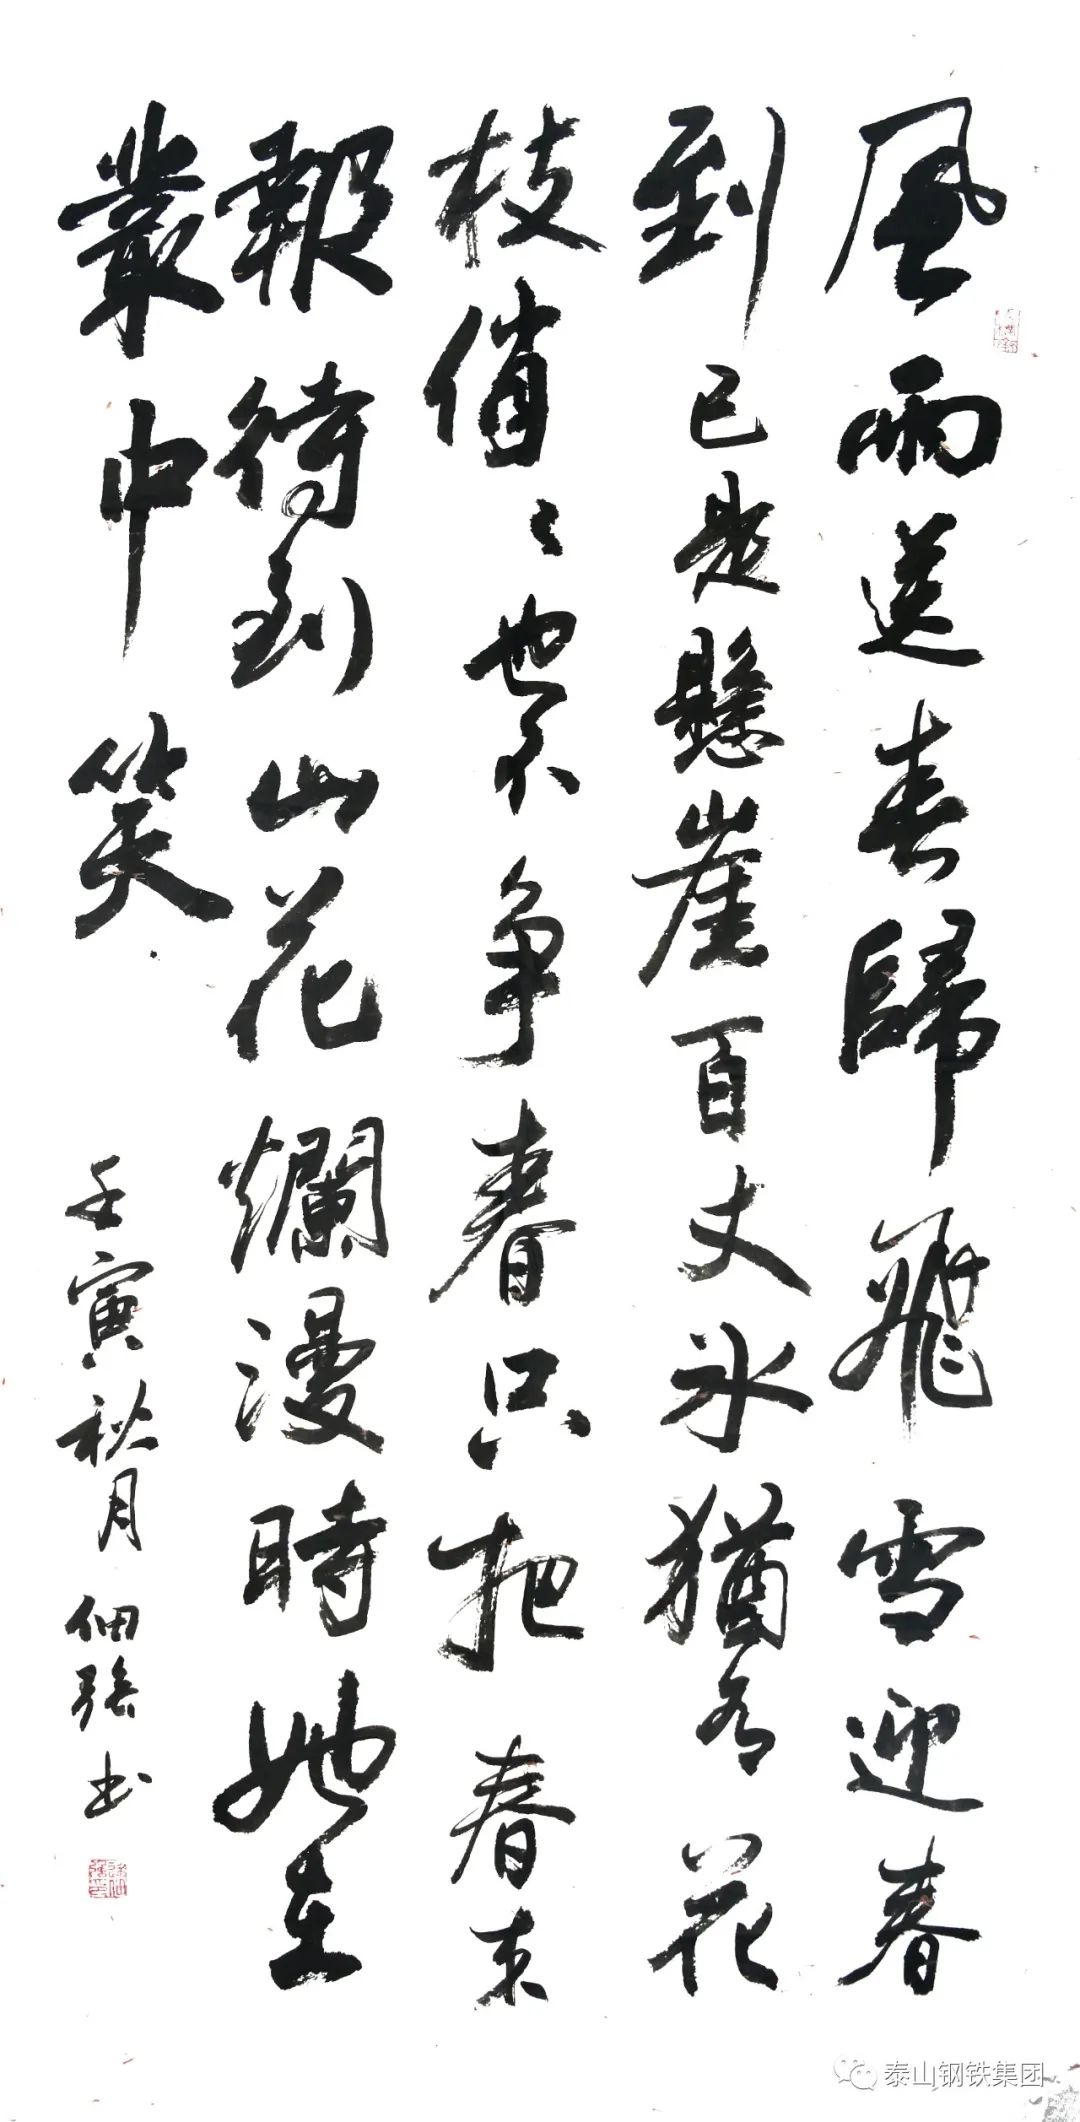 風雨送春歸飛雪迎春
到已是懸崖百丈冰猶有花
枝俏〻也不争春只把春来
報待到山花爛漫時她在
叢中笑
壬寅秋月佃强书
泰山钢铁集团